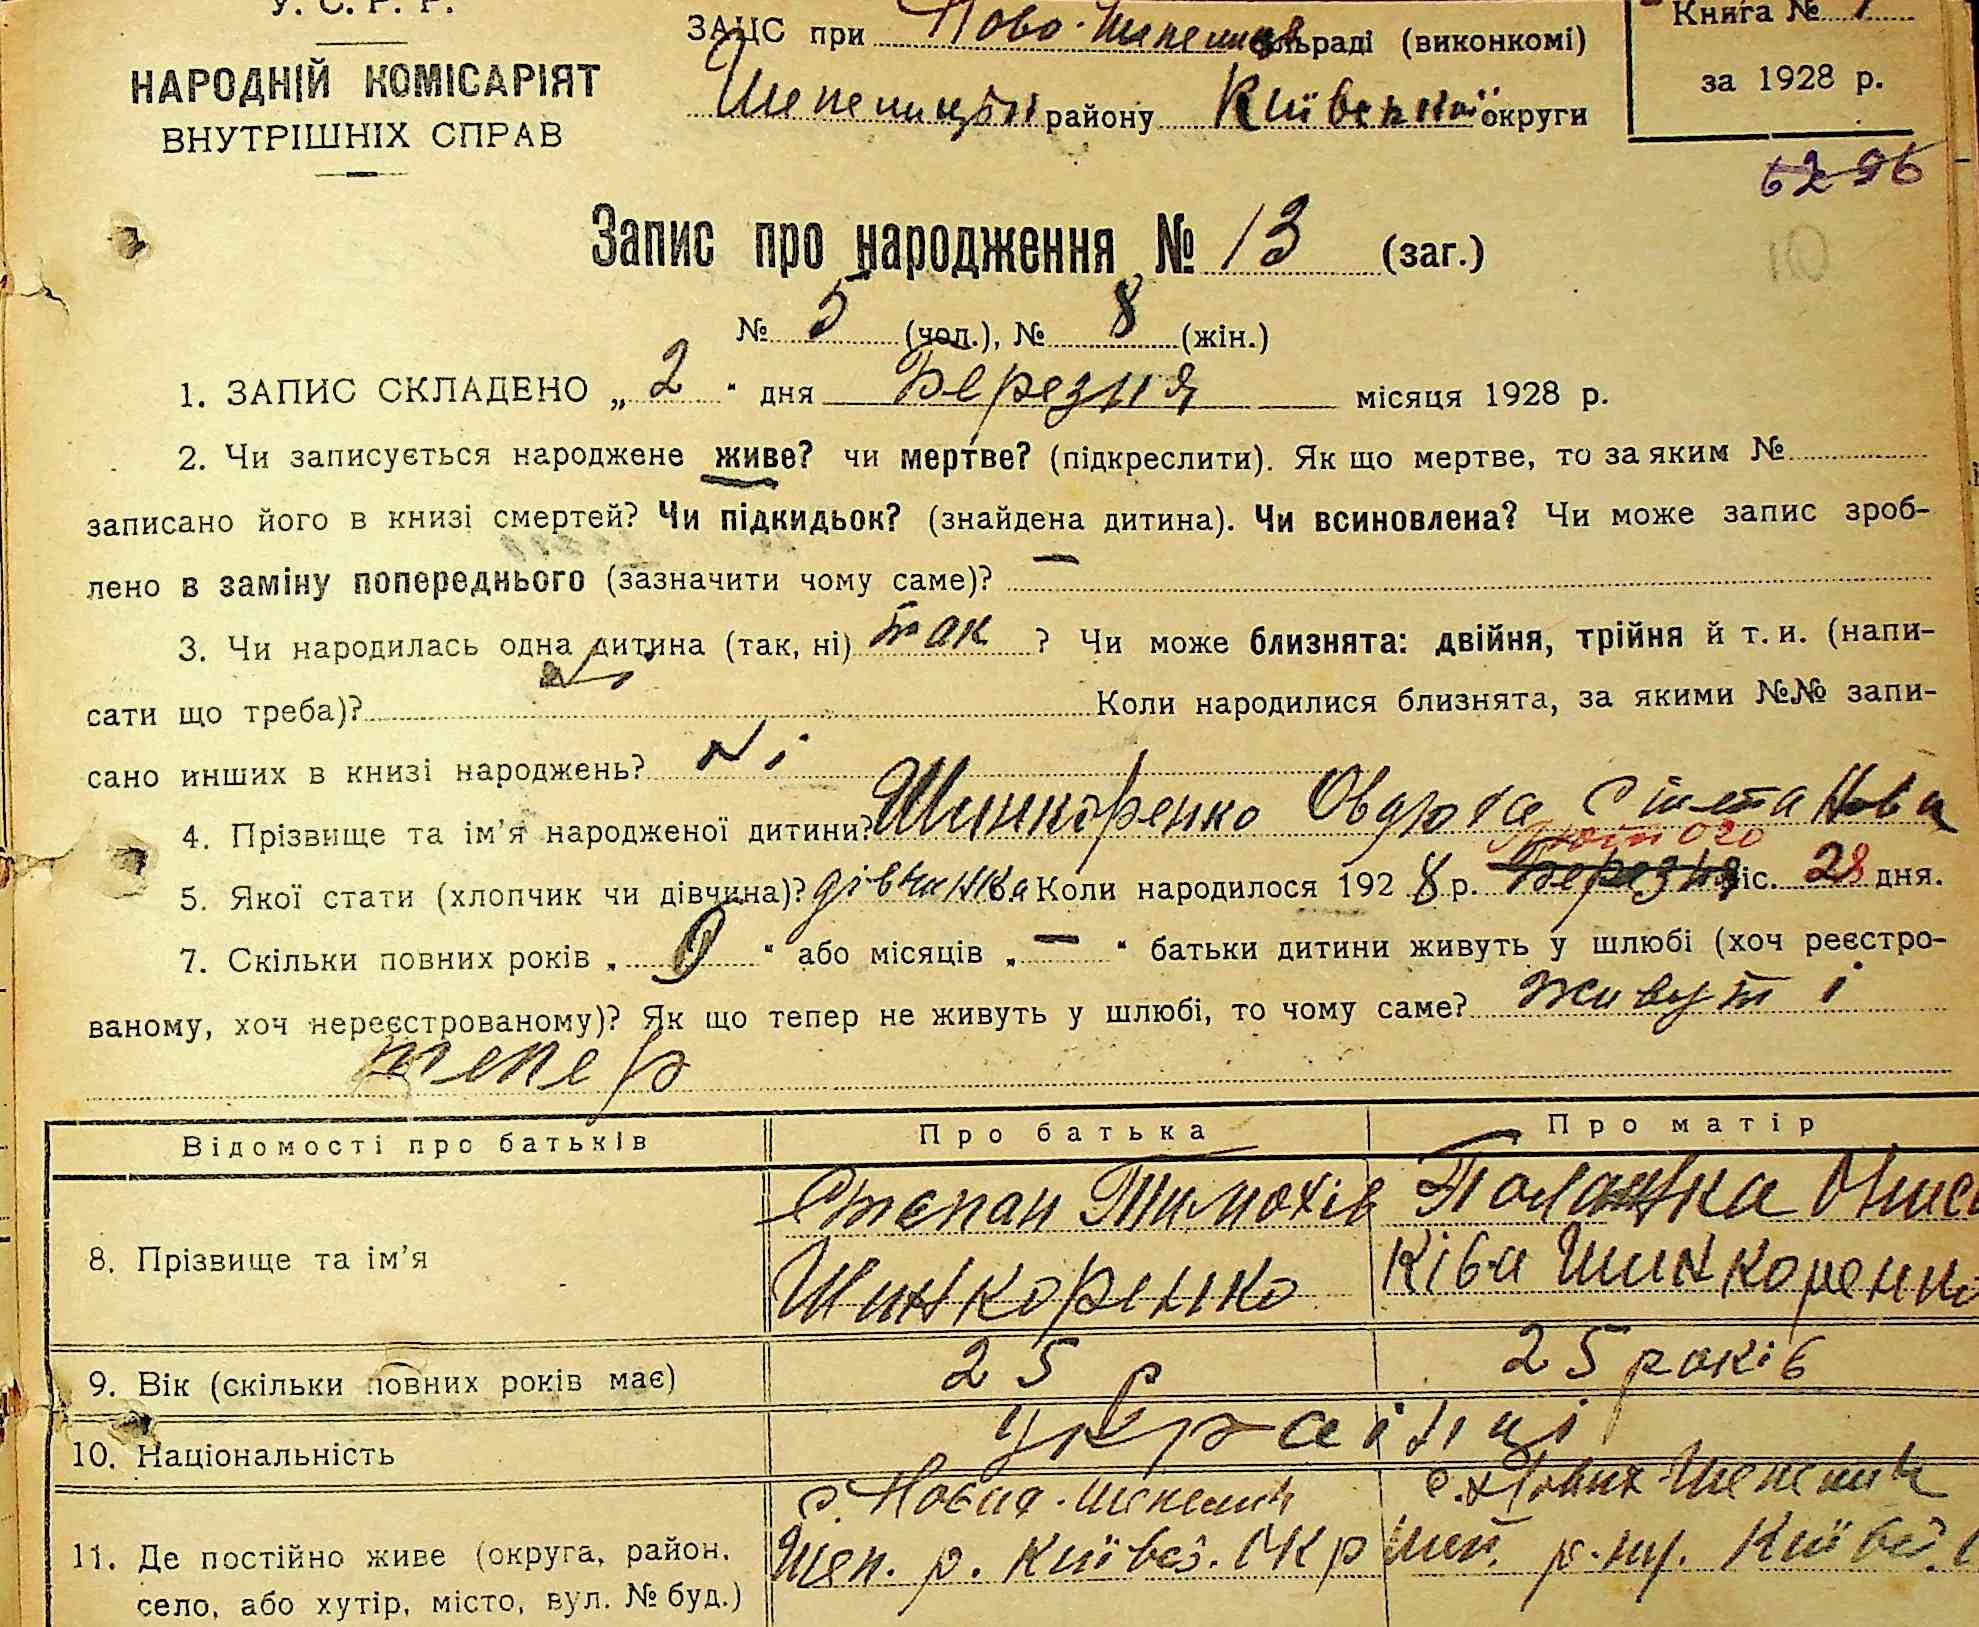 У. С. Р. Р.
НАРОДНІЙ КОМІСАРІЯТ
ВНУТРІШНІХ СПРАВ
ЗАЦС при Ново-Шепелиц сільраді (виконкомі)
району Київської округи
Книга №
за 1928 р.
6296
10
Запис про народження № 13 (заг.)
№ 5 (чол.), № 8 (жін.)
1. ЗАПИС СКЛАДЕНО „ 2 “ дня Березня місяця 1928 р.
2. Чи записується народжене живе? чи мертве? (підкреслити). Як що мертве, то за яким №
записано його в книзі смертей? Чи підкидьок? (знайдена дитина). Чи всиновлена? Чи може запис зроб-
лено в заміну попереднього (зазначити чому саме)? —
3. Чи народилась одна дитина (так, ні) так ? Чи може близнята: двійня, трійня й т. и. (напи-
сати що треба)? Ні Коли народилися близнята, за якими №№ запи-
сано инших в книзі народжень? Ні
4. Прізвище та ім’я народженої дитини? Шинкоренко Овдотя
Лютого
5. Якої стати (хлопчик чи дівчина)? дівчинка Коли народилося 1928 р. Березня міс. 28 дня.
7. Скільки повних років „ “ або місяців „ — “ батьки дитини живуть у шлюбі (хоч реєстро-
ваному, хоч нереєстрованому)? Як що тепер не живуть у шлюбі, то чому саме? живут і
тепер
Відомості про батьків Про батька Про матір
8. Прізвище та ім’я
Степан Тимохів
Шинкоренко
Шинкоренко
9. Вік (скільки повних років має) 25 р 25 років
10. Національність українці
11. Де постійно живе (округа, район,
село, або хутір, місто, вул. № буд.)
с. Новая-Шепелич
Шеп. р. Київс. Окр
с. Нових-Шепелич